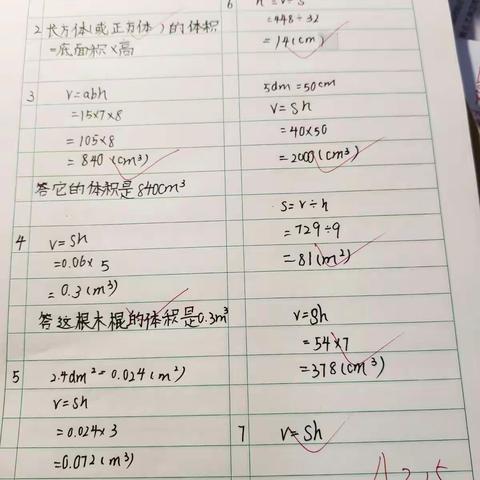 2 长方体(或正方体)的体积
=底面积×高
3 V=abh
=15×7×8
=105×8
=840(cm³)
答它的体积是840cm³
4 V=Sh
=0.06×5
=0.3(m³)
答这根木棍的体积是0.3m³
5 2.4dm²=0.024(m²)
V=Sh
=0.024×3
=0.072(m³)
6
=448÷32
=14(cm)
5dm=50cm
V=Sh
=40×50
=2000(cm³)
S=V÷h
=729÷9
=81(m²)
V=Sh
=54×7
=378(cm³)
7 V=Sh